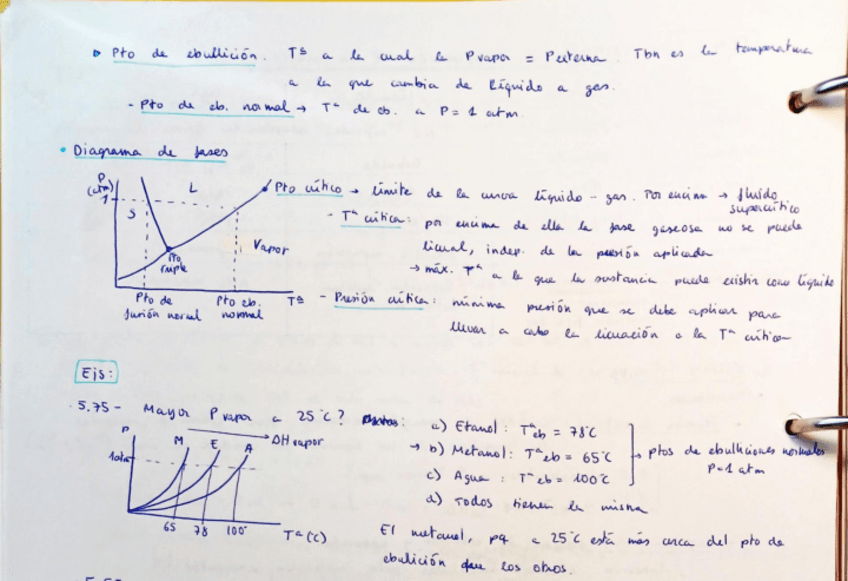 ▷ Pto de ebullición. Tª a la cual la Pvapor = Pexterna. Tbn es la temperatura
a la que cambia de líquido a gas.
- Pto de eb. normal → Tª de eb. a P = 1 atm.
• Diagrama de fases
P (atm)
1
S
L
Vapor
Pto triple
Pto de fusión normal
Pto eb. normal
Tª
Pto crítico → límite de la curva líquido - gas. Por encima → fluido supercrítico
- Tª crítica: por encima de ella la fase gaseosa no se puede
licuar, indep. de la presión aplicada
→ máx. Tª a la que la sustancia puede existir como líquido
- Presión crítica: mínima presión que se debe aplicar para
llevar a cabo la licuación a la Tª crítica
Ejs:
5.75 - Mayor Pvapor a 25°C?
a) Etanol: Tªeb = 78°C
→ b) Metanol: Tªeb = 65°C
c) Agua: Tªeb = 100°C
d) Todos tienen la misma
→ ptos de ebulliciones normales
P = 1 atm
P
1atm
M E A
→ ΔHvapor
65 78 100
Tª (C)
El metanol, pq a 25°C está más cerca del pto de
ebulición que los otros.